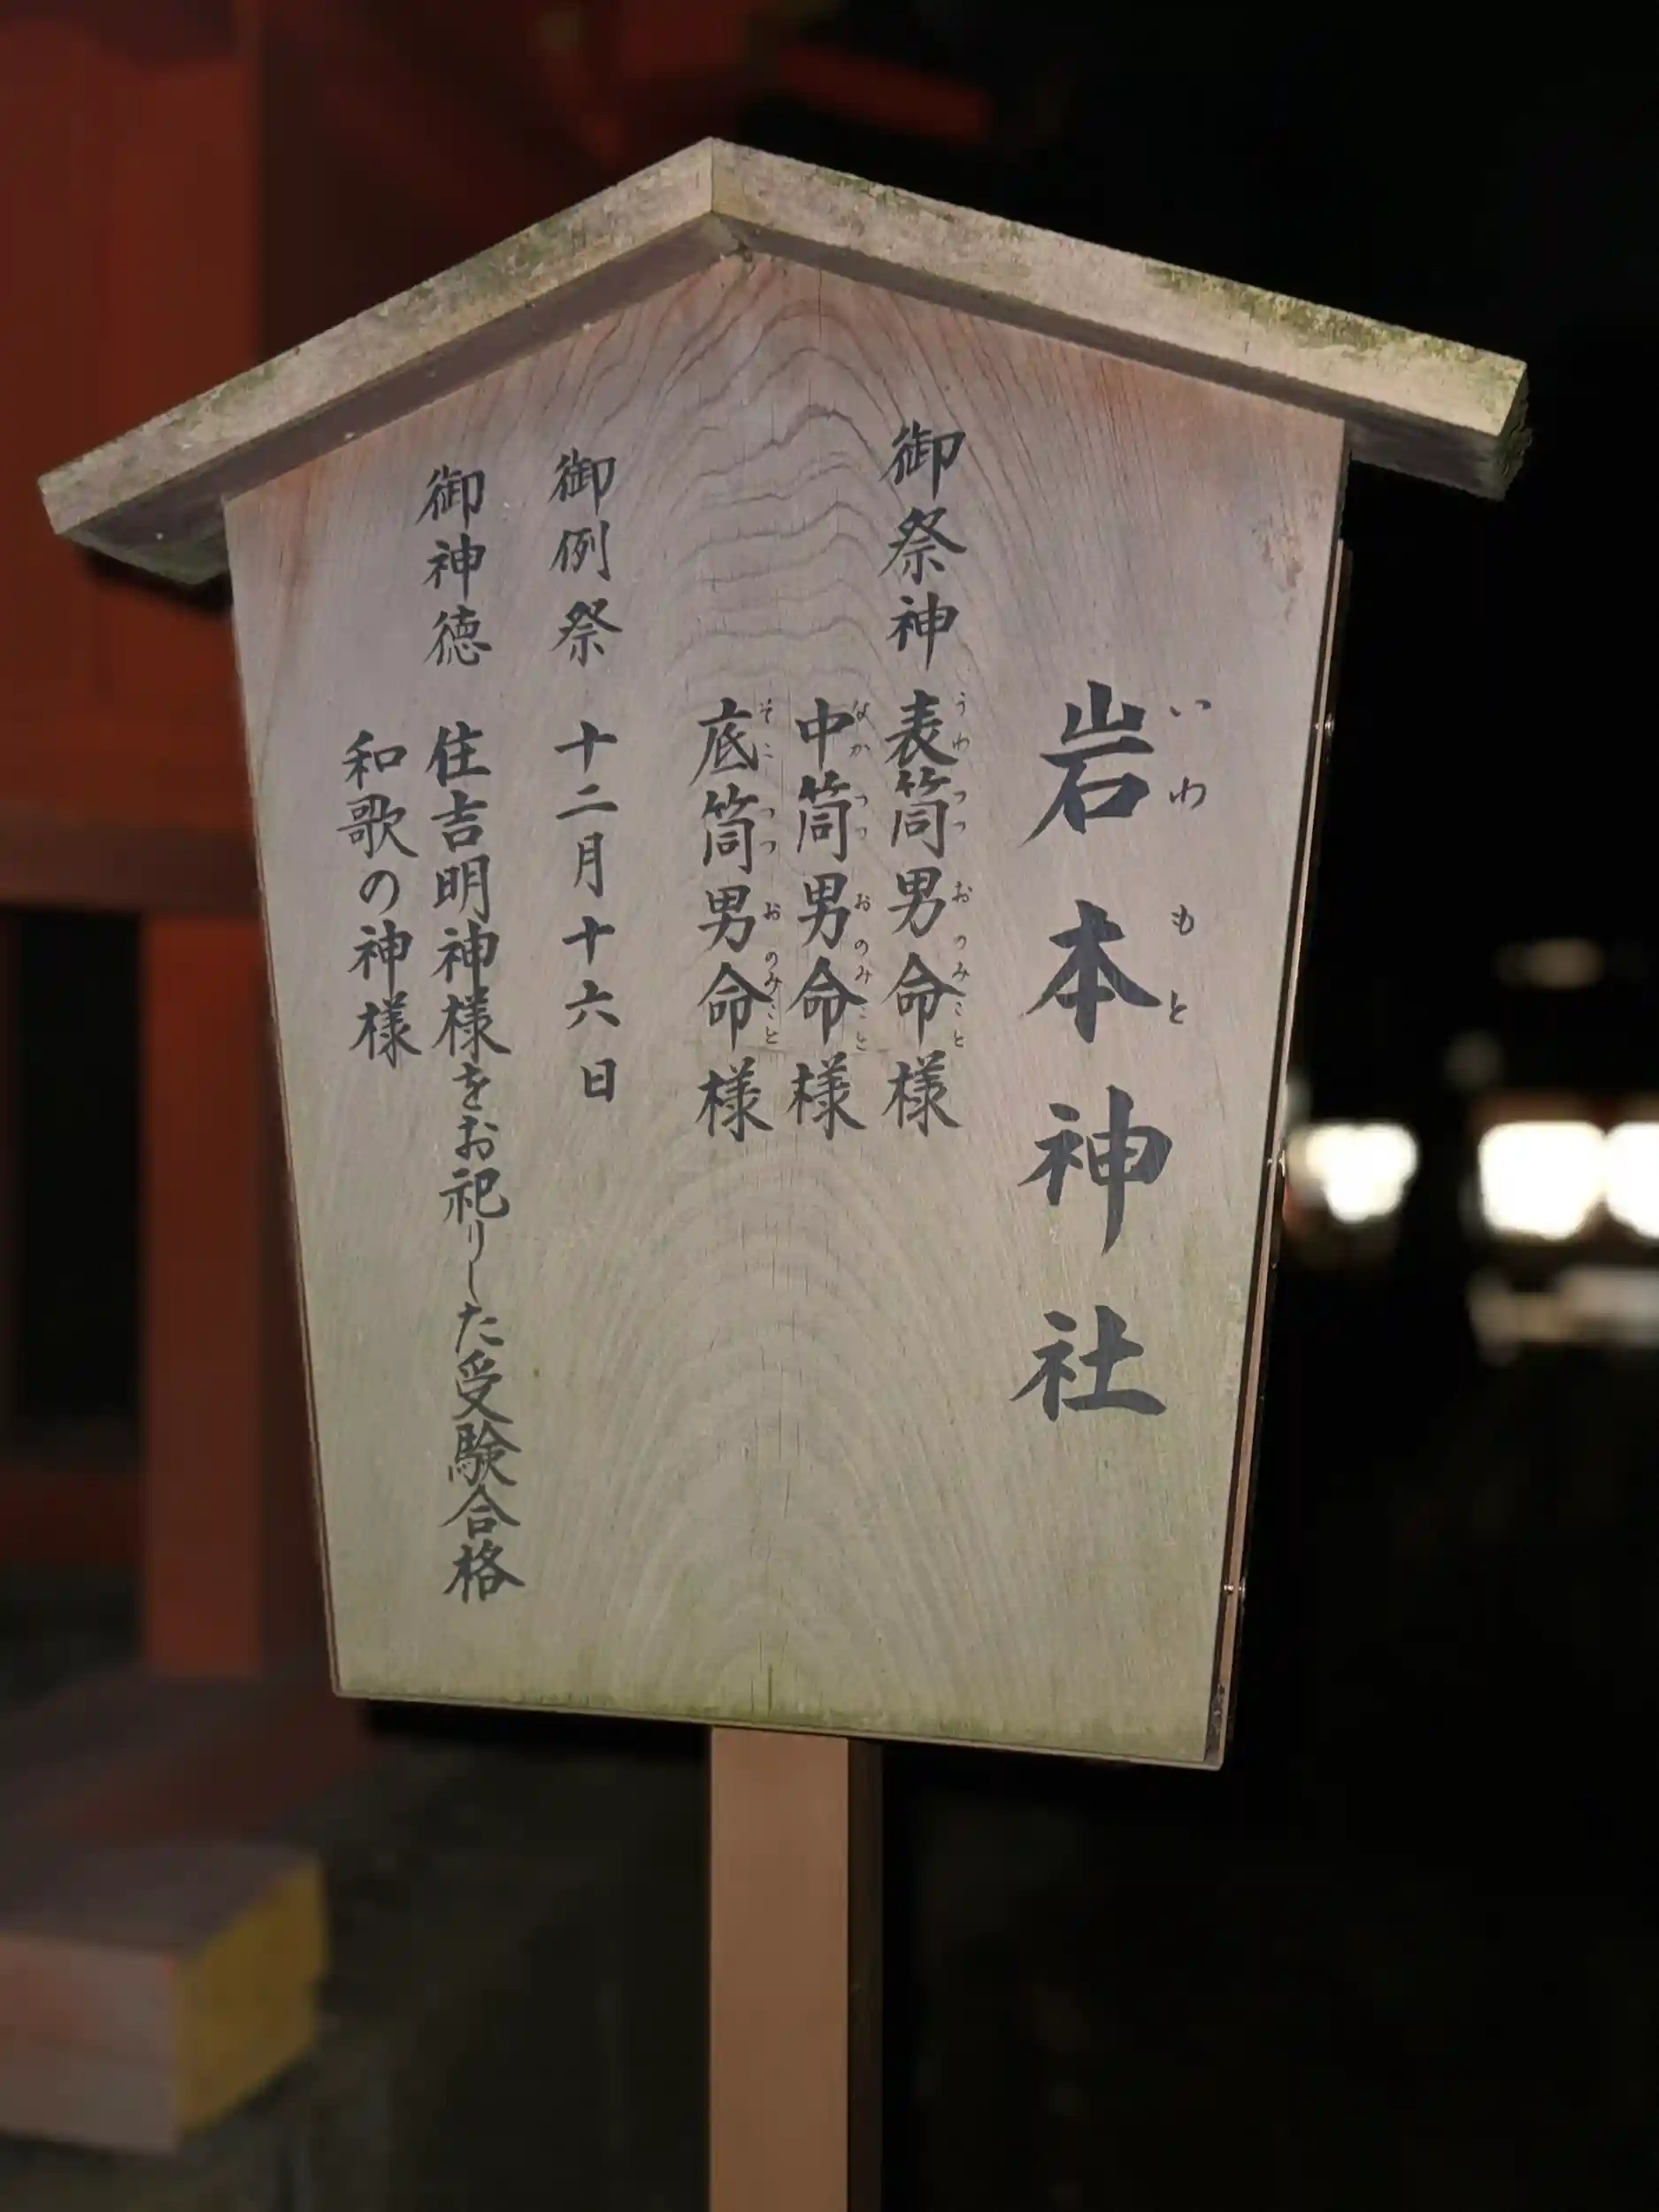 岩本神社
いわもと
御祭神 表筒男命様
うわつつおのみこと
中筒男命様
なかつつおのみこと
底筒男命様
そこつつおのみこと
御例祭 十二月十六日
御神徳 住吉明神様をお祀りした受験合格
和歌の神様